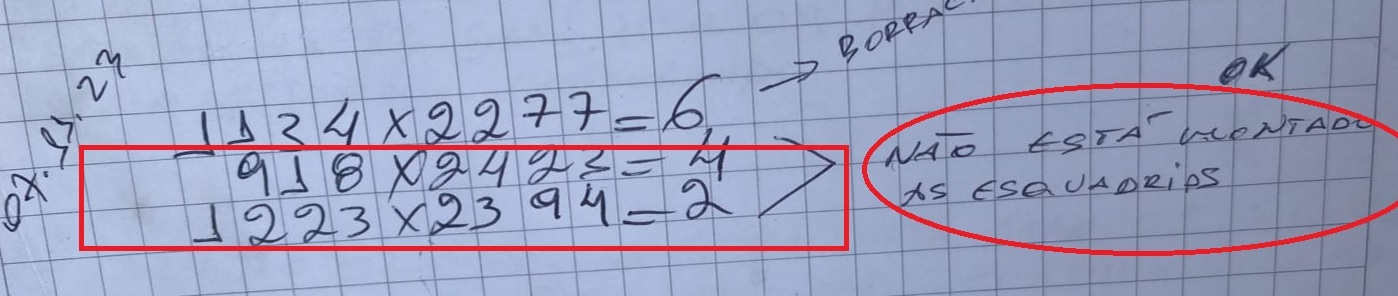 OK
1134 x 2277 = 6 →
918 x 2423 = 4
1223 x 2394 = 2
NÃO ESTÁ MONTADO
AS ESQUADRIAS